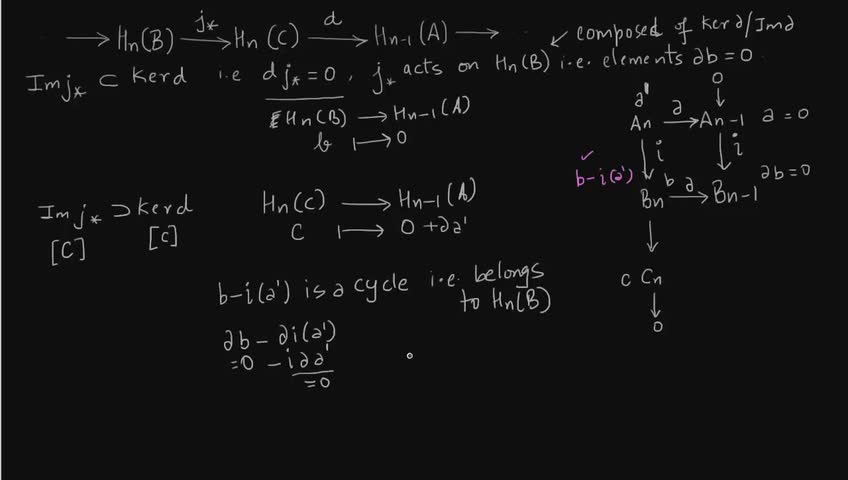 → Hn(B) j* → Hn(C) d → Hn-1(A) →
composed of Ker∂/Im∂
Im j* ⊂ Kerd i.e dj* = 0, j* acts on Hn(B) i.e. elements ∂b = 0
Hn(B) → Hn-1(A)
b ↦ 0
0
a'
An ∂ → An-1 a = 0
i i
b-i(a') b ∂b = 0
Bn ∂ → Bn-1
Im j* ⊃ Kerd
[C] [c]
Hn(C) → Hn-1(A)
C ↦ 0 + ∂a'
c Cn
0
b-i(a') is a cycle i.e. belongs
to Hn(B)
∂b - ∂i(a')
=0 - i∂a'
=0